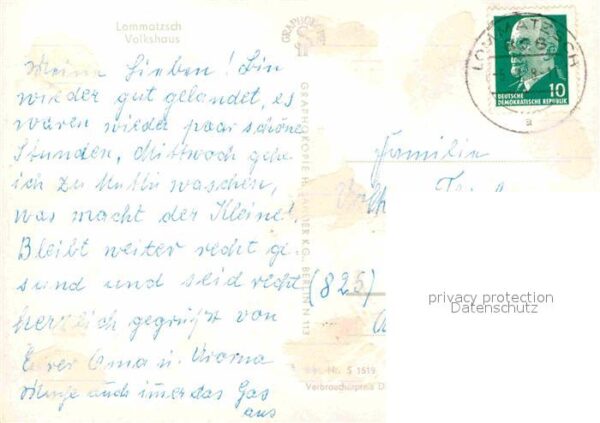 Lommatzsch
Volkshaus
Meine Lieben! Bin
wieder gut gelandet, es
waren wieder paar schöne
Stunden, Mittwoch gehe
ich zu Mutti waschen,
was macht der Kleine!
Bleibt weiter recht ge-
sund und seid recht
herzlich gegrüßt von
Eurer Oma u. Uroma
auch immer das Gas
aus
GRAPHOKOPIE H. SANDER KG., BERLIN N 113
S 1619
Verbraucherpreis
LOMMATZSCH
10
DEUTSCHE
DEMOKRATISCHE REPUBLIK
a
Familie
(825)
privacy protection
Datenschutz